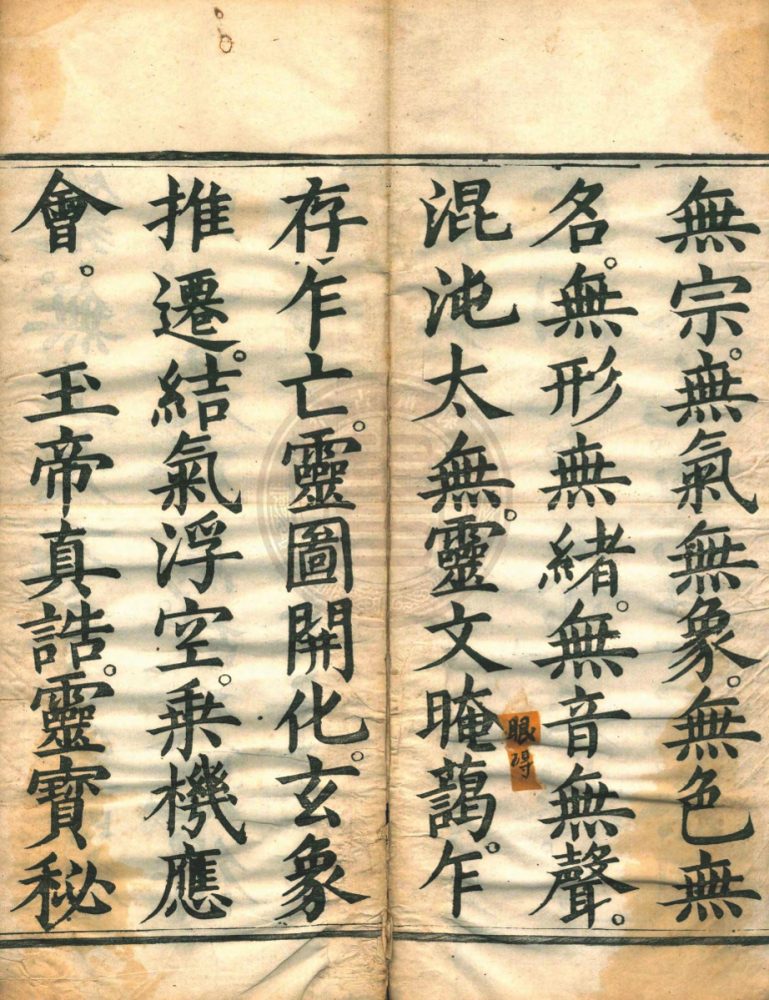 無宗。無氣無象。無色無
名。無形無緒。無音無聲。
混沌太無。靈文晻藹。乍
眼得
存乍亡。靈圖開化。玄象
推遷。結氣浮空。乗機應
會。 玉帝真誥。靈寶秘